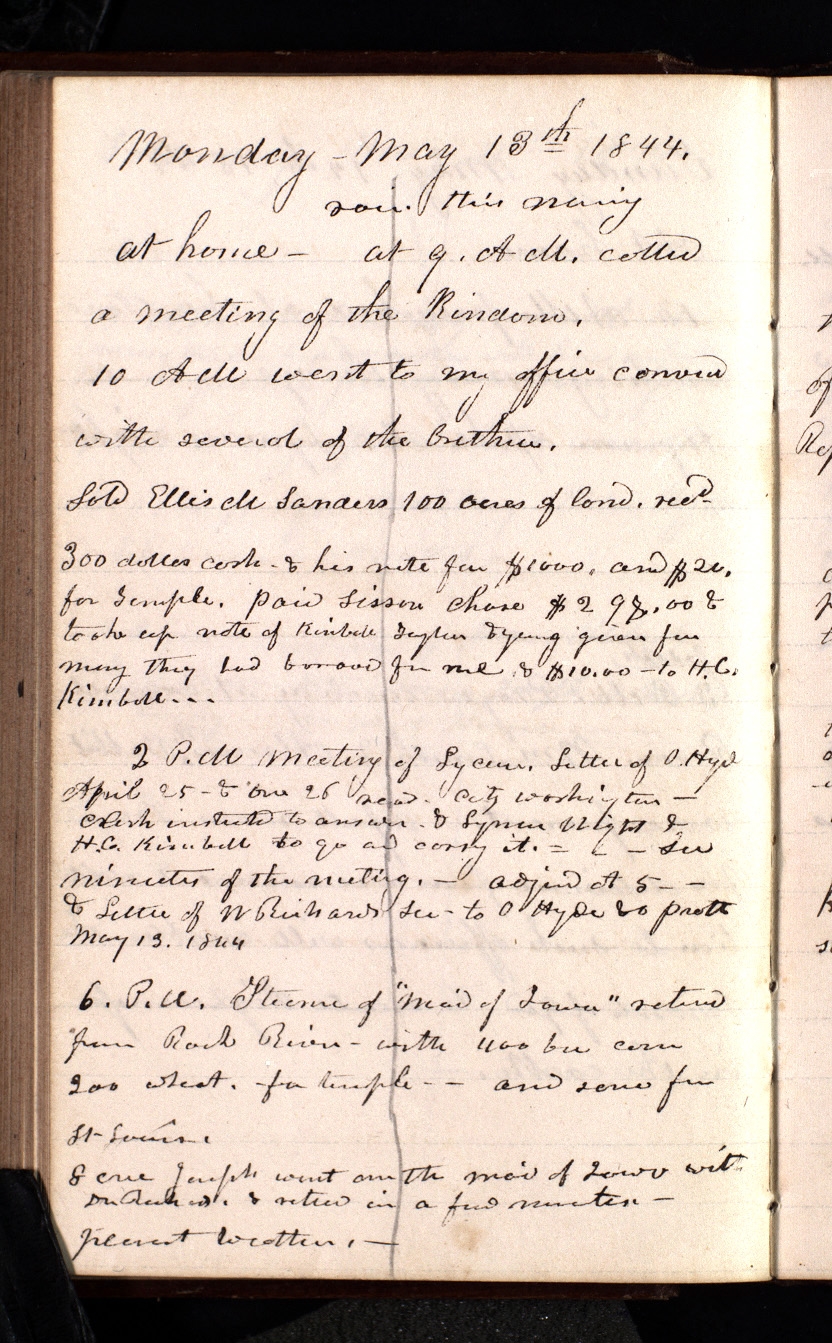 Monday - May 13th 1844.
rain. this mornig
at home - at 9. A M. called
a meeting of the Kindom.
10 A M went to my office convesd
with several of the brethren.
Sold Ellis M Sanders 100 acres of land. recd
300 dolles cash - & his note for $1000, and $20.
for Temple. paid Sisson Chase $297,00 &
took up note of Kimball Taylor & young given for
money they had borrowd for me. & $10.00 - to H.C.
Kimball...
2 P.M Meeting of Lyceum. Letter of O. Hyde
April 25 - & one 26 read. City Washington -
Clerk instructd to answer. & Lyman Wight &
H.C. Kimball to go and carry it. = - See
minutes of the meeting. - adjnd at 5 - -
& Letter of W Richards Sec - to O Hyde & O Pratt
May 13. 1844
6. P.M. Steamer of "Maid of Iowa" retund
from Rock River - with 400 bu corn
200 wheat. for temple - - and some for
St Louis.
& eve Joseph went on the maid of Iowa with
Dr Richards. & retund in a few minutes -
pleasant weather. -